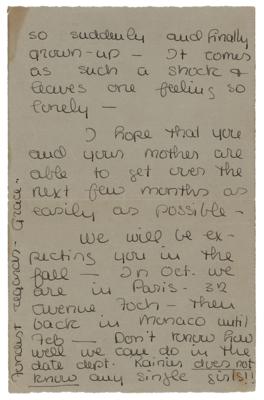 so suddenly and finally
grown-up — It comes
as such a shock &
leaves one feeling so
lonely —
I hope that you
and your mother are
able to get over the
next few months as
easily as possible -
We will be ex-
pecting you in the
fall — In Oct. we
are in Paris - 32
avenue Foch - then
back in Monaco until
Feb — Don't know how
well we can do in the
date dept. Rainier does not
know any single girls!!
Fondest regards - Grace -